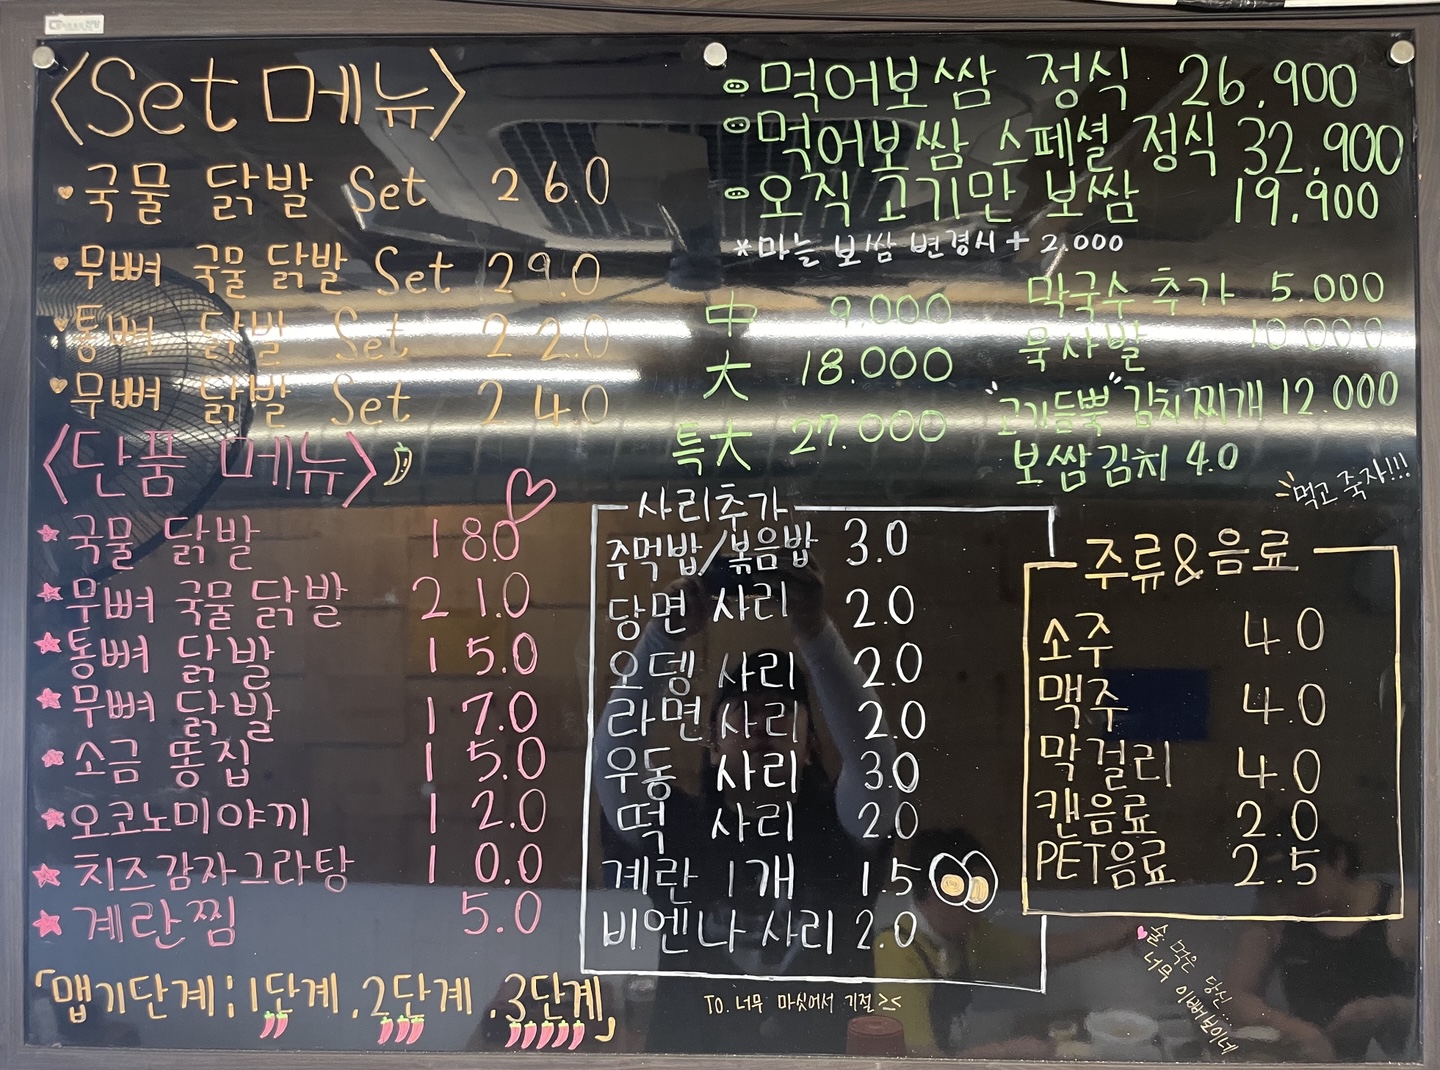 <Set 메뉴>
국물 닭발 Set 26.0
무뼈 국물 닭발 Set 29.0
통뼈 닭발 Set 22.0
무뼈 닭발 Set 24.0
<단품 메뉴>
국물 닭발 18.0
무뼈 국물 닭발 21.0
통뼈 닭발 15.0
무뼈 닭발 17.0
소금 똥집 15.0
오코노미야끼 12.0
치즈감자그라탕 10.0
계란찜 5.0
「맵기단계:1단계.2단계.3단계」
먹어보쌈 정식 26.900
먹어보쌈 스페셜 정식 32.900
오직 고기만 보쌈 19.900
*마늘 보쌈 변경시 + 2.000
中 9.000
大 18.000
특大 27.000
막국수 추가 5.000
묵사발 10.000
"고기듬뿍"김치찌개 12.000
보쌈김치 4.0
먹고 죽자!!!
사리추가
주먹밥/볶음밥 3.0
당면 사리 2.0
오뎅 사리 2.0
라면 사리 2.0
우동 사리 3.0
떡 사리 2.0
계란 1개 1.5
비엔나 사리 2.0
TO. 너무 마싯어서 기절 ><
주류&음료
소주 4.0
맥주 4.0
막걸리 4.0
캔음료 2.0
PET음료 2.5
술 먹은 당신...
너무 이뻐보이네